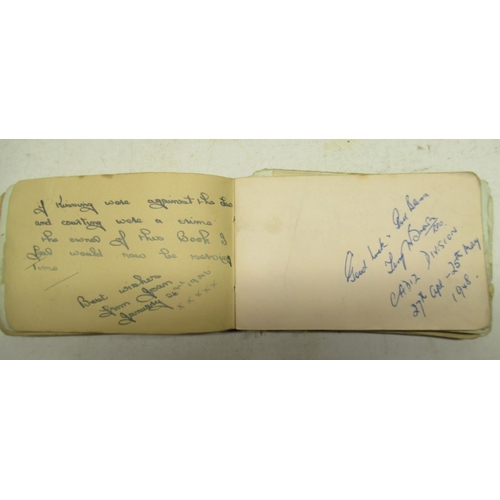 If Kissing were against the Law
and courting were a crime
the owner of this Book I
feal would now be serving
Time
Best wishes
from Joan
January 1948
x x x x x
Good Luck
CADIZ DIVISION
27th Apl - 20th May
1948.